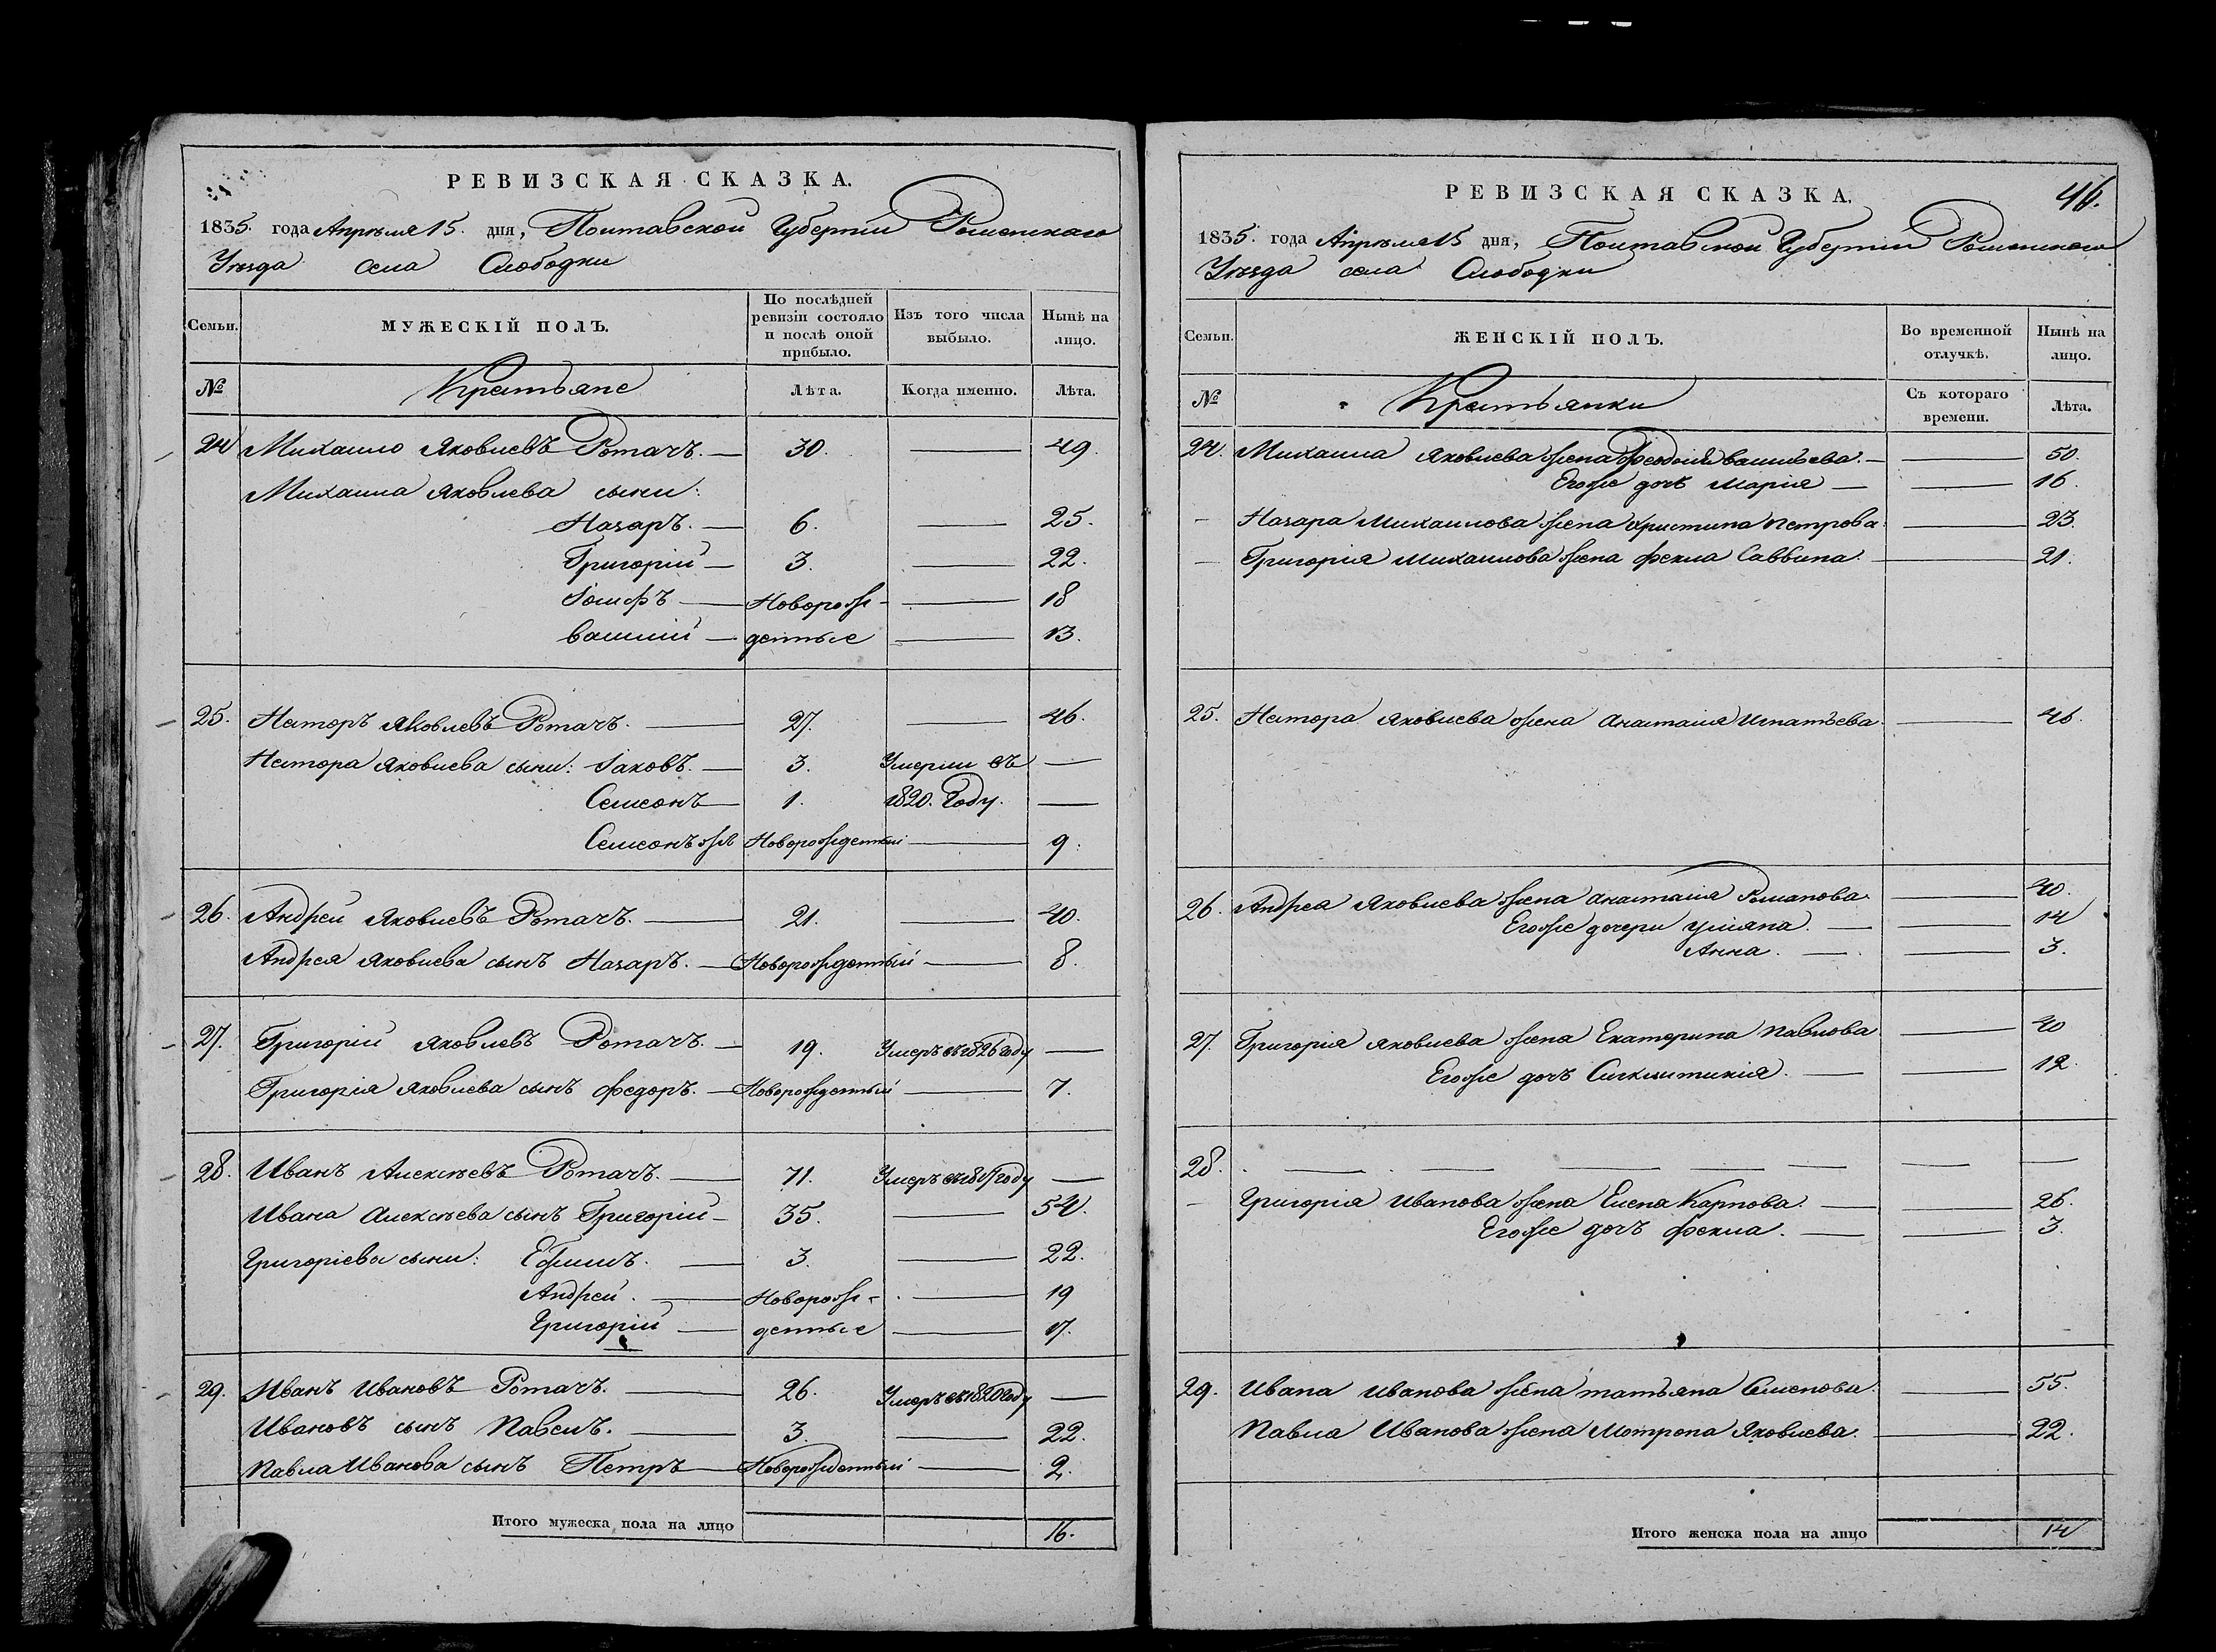 РЕВИЗСКАЯ СКАЗКА.
1835. года Апреля 15. дня, Полтавской Губернїи Роменского
Уезда села Слободки
Семьи. МУЖЕСКІЙ ПОЛЪ. По послѣдней ревизіи состояло и послѣ оной прибыло. Изъ того числа выбыло. Нынѣ на лицо.
№ Крестьяне Лѣта. Когда именно. Лѣта.
24 Михаило Яковлевъ Ротачъ. 30. 49.
Михаила Яковлева сыни:
Назаръ. 6. 25.
Григорій 3. 22.
Іосифъ Новорож- 18
Василій денные 13.
25. Несторъ Яковлевъ Ротачъ. 27. 46.
Нестора Яковлева сыни: Іаковъ. 3. Умерли въ
Семенъ 1. 1820. Году.
Семенъ же Новорожденный 9.
26. Андрей Яковлевъ Ротачъ. 21. 40.
Андрея Яковлева сынъ Назаръ. Новорожденный 8.
27. Григорій Яковлевъ Ротачъ. 19. Умеръ въ 1826 году
Григорія Яковлева сынъ Федоръ. Новорожденный 7.
28. Иванъ Алексѣевъ Ротачъ. 71. Умеръ въ году
Ивана Алексѣева сынъ Григорій 35. 54.
Григоріевы сыни: Ефимъ. 3. 22.
Андрей. Новорож- 19
Григорій денные 17.
29. Иванъ Ивановъ Ротачъ. 26. Умеръ въ 1820 Году
Ивановъ сынъ Павелъ. 3. 22.
Павла Иванова сынъ Петръ Новорожденный 2.
Итого мужеска пола на лицо 16.
46.
РЕВИЗСКАЯ СКАЗКА.
1835. года Апреля 15 дня, Полтавской Губерніи Роменского
Уезда села Слободки
Семьи. ЖЕНСКІЙ ПОЛЪ. Во временной отлучкѣ. Нынѣ на лицо.
№ Крестьянки Съ котораго времени. Лѣта.
24. Михаила Яковлева жена Феодосія Васильева. 50.
Егоже дочь Марія 16.
Назара Михаилова жена Христина Петрова 23.
Григорія Михаилова жена Фекла Саввина. 21.
25. Нестора Яковлева жена Анастасія Игнатьева 46.
26. Андрея Яковлева жена Анастасія Романова 40.
Егоже дочери Уліяна. 14
Анна. 3.
27. Григорія Яковлева жена Екатерина Павлова 40
Егоже дочь Сигклитикія. 12.
28.
Григорія Иванова жена Елена Карпова. 26.
Егоже дочь Фекла. 3.
29. Ивана Иванова жена Татьяна Семенова. 55.
Павла Иванова жена Мотрона Яковлева. 22.
Итого женска пола на лицо 14